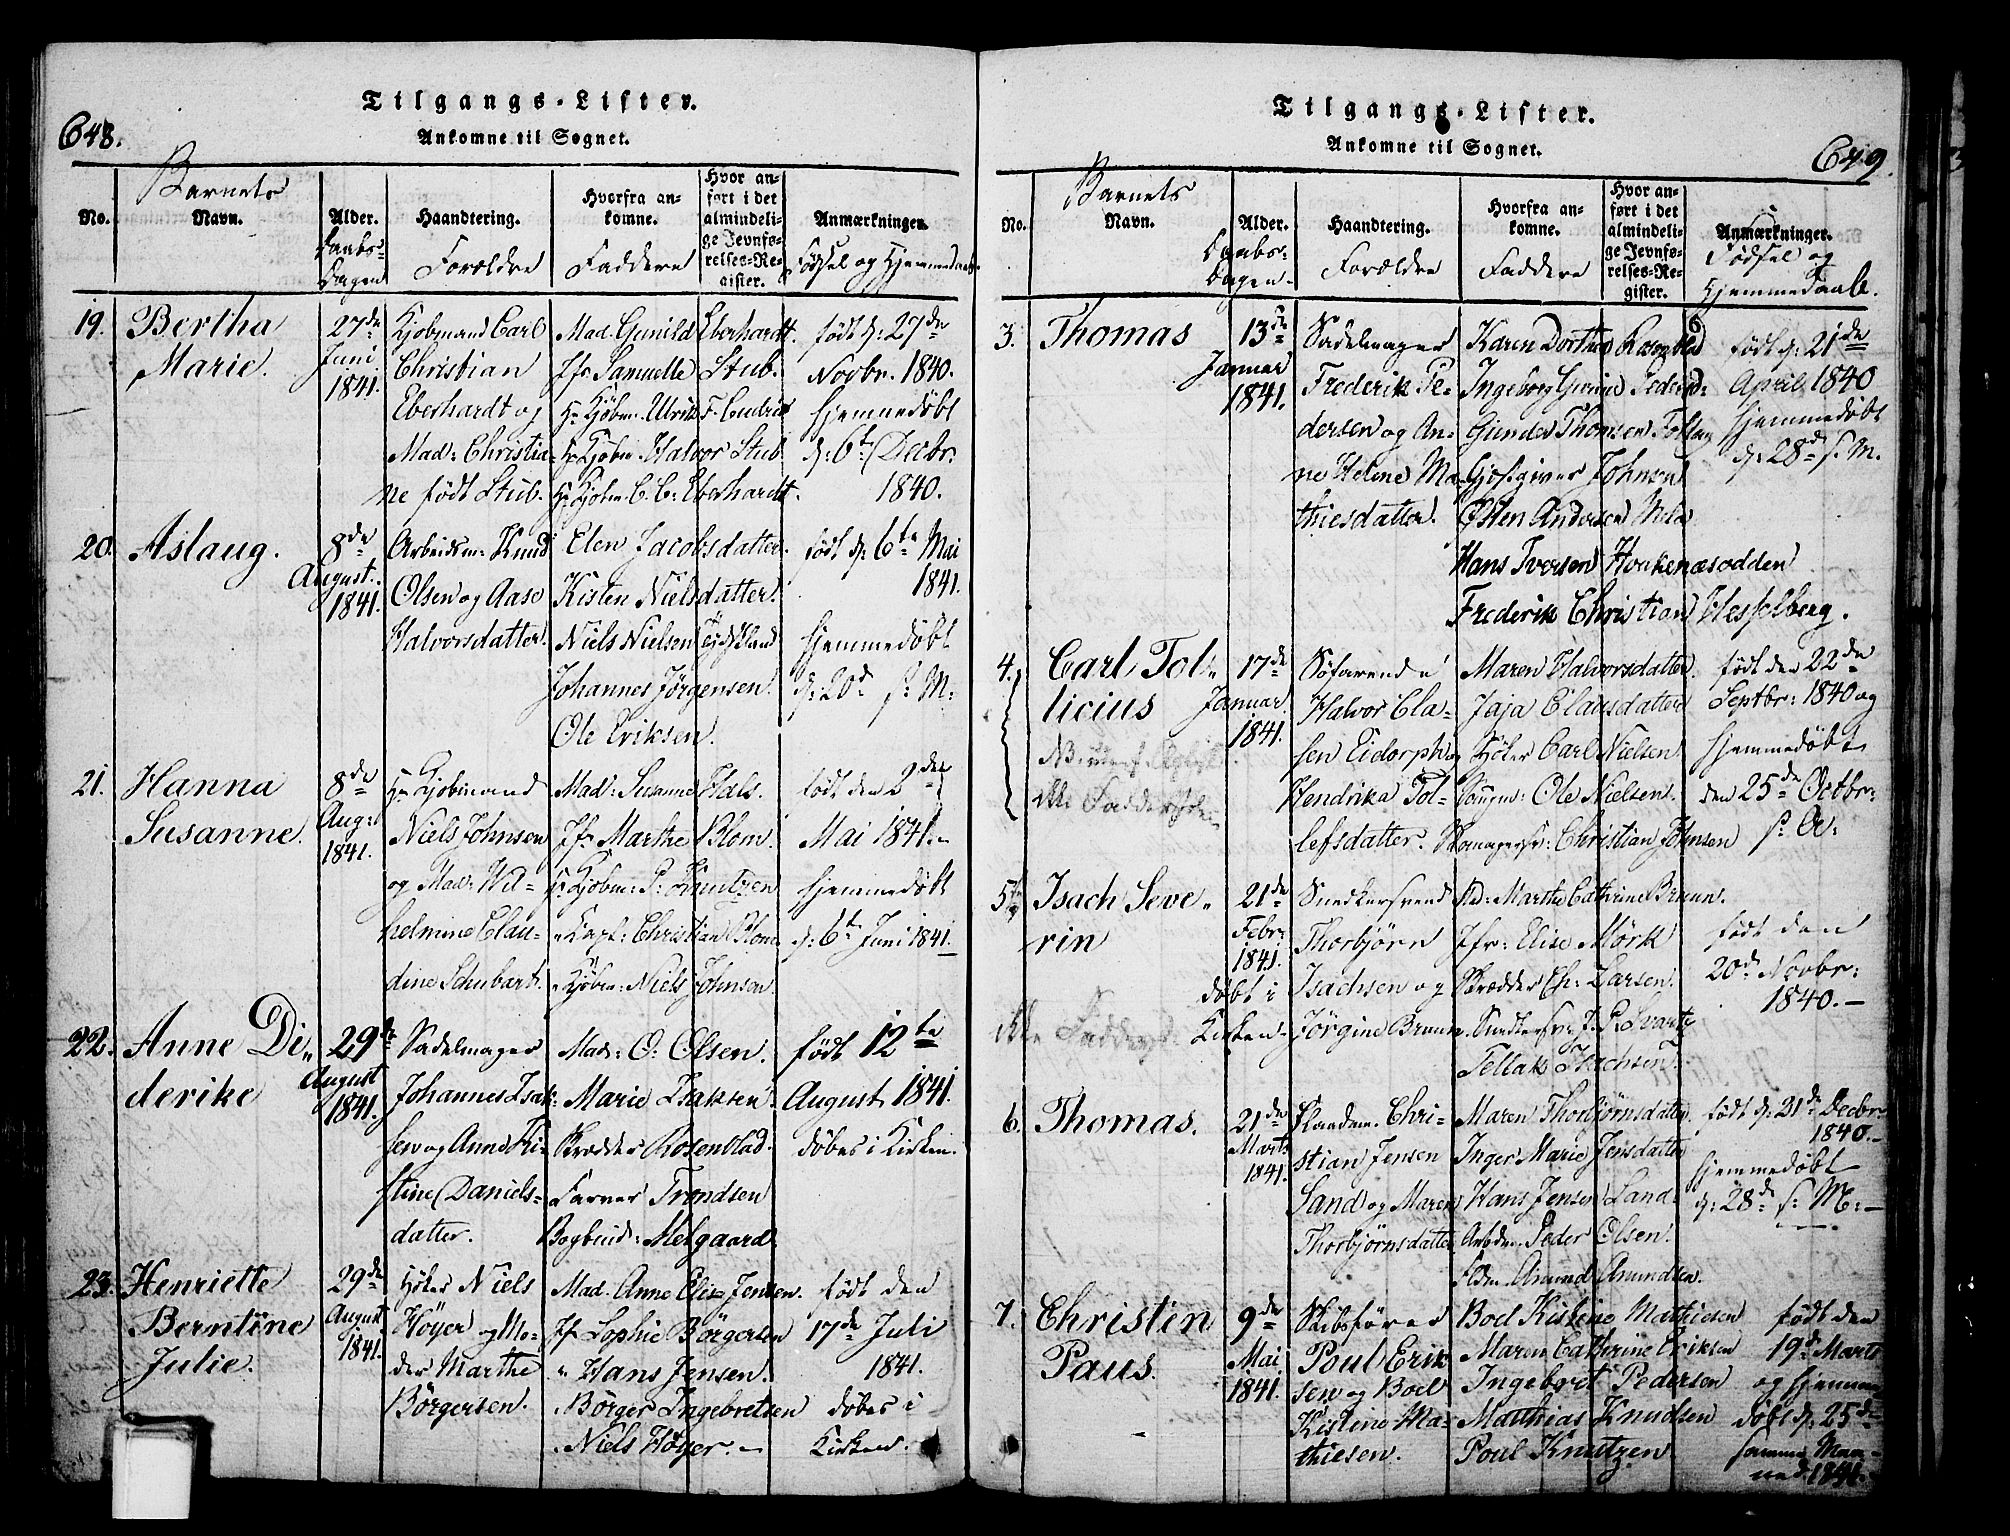 648.
Tilgangs-Lister.
Ankomne til Sognet.
No.
Barnets
Navn.
Alder.
Daabs-
Dagen
Haandtering.
Forældre
Hvorfra an-
komne.
Faddere
Hvor an-
ført i det
almindeli-
ge Jevnfø-
relses-Re-
gister.
Anmærkninger.
Fødsel og Hjemmedaab
19.
Bertha
Marie.
27de
Juni
1841.
Kjøbmand Carl
Christian
Eberhardt og
Mad: Christia-
ne født Stub.
Mad. Gunild Eberhardt.
Jfr Samuelle Stub.
Hr Kjøbm. Ulrik F.
Hr Kjøbm. Halvor Stub
Hr Kjøbm. C. C: Eberhardt.
født d: 27de
Novbr. 1840.
hjemmedøbt
d: 6te Decbr:
1840.
20.
Aslaug.
8de
August.
1841.
Arbeidsm: Knud
Olsen og Aase
Halvorsdatter.
Elen Jacobsdatter.
Kisten Nielsdatter.
Niels Nielsen Tydskland
Johannes Jørgensen.
Ole Eriksen.
født d: 6te Mai
1841.
hjemmedøbt
d: 20de s: M:
21.
Hanna
Susanne.
8de
Aug:
1841.
Hr Kjøbmand
Niels Johnsen
og Mad: Wil-
helmine Clau-
dine Schubart.
Mad: Susanne Hals.
Jfr Marthe Blom.
Hr Kjøbm: P: Knutzen
" Capt: Christian Blom
" Kjøbm: Niels Johnson.
født den 2den
Mai 1841.-
hjemmedøbt
d: 6te Juni 1841.
22.
Anne Di-
derike
29de
August
1841.
Sadelmager
Johannes Isak-
sen og Anne Ki-
stine Daniels-
datter.
Mad: O: Olsen.
Marie Isaksen.
Skrædder Rosenblad.
Farver Trondsen
Bogbind: Melgaard.
født 12te
August 1841.
døbes i Kirken.
23.
Henriette
Berntine
Julie.
29de
August
1841.
Høker Niels
Höyer og Mo-
der Marthe
Börgersen.
Mad. Anne Elise Jensen.
Jfr Sophie Börgersen
" Hans Jensen.
Börger Ingebretsen
Niels Höyer.-
født den
17de Juli
1841.
døbes i
Kirken.
Tilgangs-Lister.
Ankomne til Sognet.
649.
No.
Barnets
Navn.
Alder.
Daabs-
Dagen.
Haandtering.
Forældre
Hvorfra an-
komne.
Faddere
Hvor an-
ført i det
almindeli-
ge Jevnfø-
relses-Re-
gister.
Anmærkninger.
Fødsel og
Hjemmedaab.
3.
Thomas
13de
Januar
1841.
Sadelmager
Frederik Pe-
dersen og An-
ne Helene Ma-
thiesdatter.
Karen Dorthea
Ingeborg Gurine Pedersd:
Gunder Thomsen
Gjestgiver Johnsen
Østen Andersen
Hans Iversen
Frederik Christian Hesselberg.
født d: 21de
April 1840
hjemmedøbt
d: 28de s. M.
4.
Carl Tol-
licius
17de
Januar.
1841.
Søfarende
Halvor Cla-
sen Eidorph og
Hendrika Tol-
lefsdatter.
Maren Halvorsdatter.
Jaja Clausdatter
Høker Carl Nielsen.
Ole Nielsen.
Skomagersv: Christian Johnsen
født den 22de
Septbr: 1840 og
hjemmedøbt
den 25de Octbr:
s: A:
5.
Isach Seve-
rin
21de
Febr:
1841.
døbt i
Kirken.
Snedkersvend
Thorbjörn
Isachsen og
Jörgine Bruun.
Md: Marthe Cathrine Bruun.
Jfr: Elise Mörk
Skrædder Ch: Larsen.
Snedkersv: J. P. Svartz
Tellak Isachsen.
født den
20de Novbr:
1840.-
6.
Thomas.
21de
Marts
1841.
Christian Jensen
Sand og Maren
Thorbjørnsdatter
Maren Thorbjörnsdatter
Inger Marie Jensdatter
Hans Jensen Sand-
Arbdm. Peder Olsen.
Amund Amundsen.
født d: 21de Decbr:
1840.-
hjemmedøbt
d: 28de s: M:-
7.
Christen
Paus.
9de
Mai
1841.
Skibsfører
Poul Erik-
sen og Boel
Kistine Ma-
thiesen.
Boel Kistine Mathiesen
Maren Cathrine Eriksen
Ingeboret Pedersen
Matthias Knudsen
Poul Knutzen.
født den
19de Marts
og hjemme-
døbt d: 25de
samme Maa-
ned 1841.